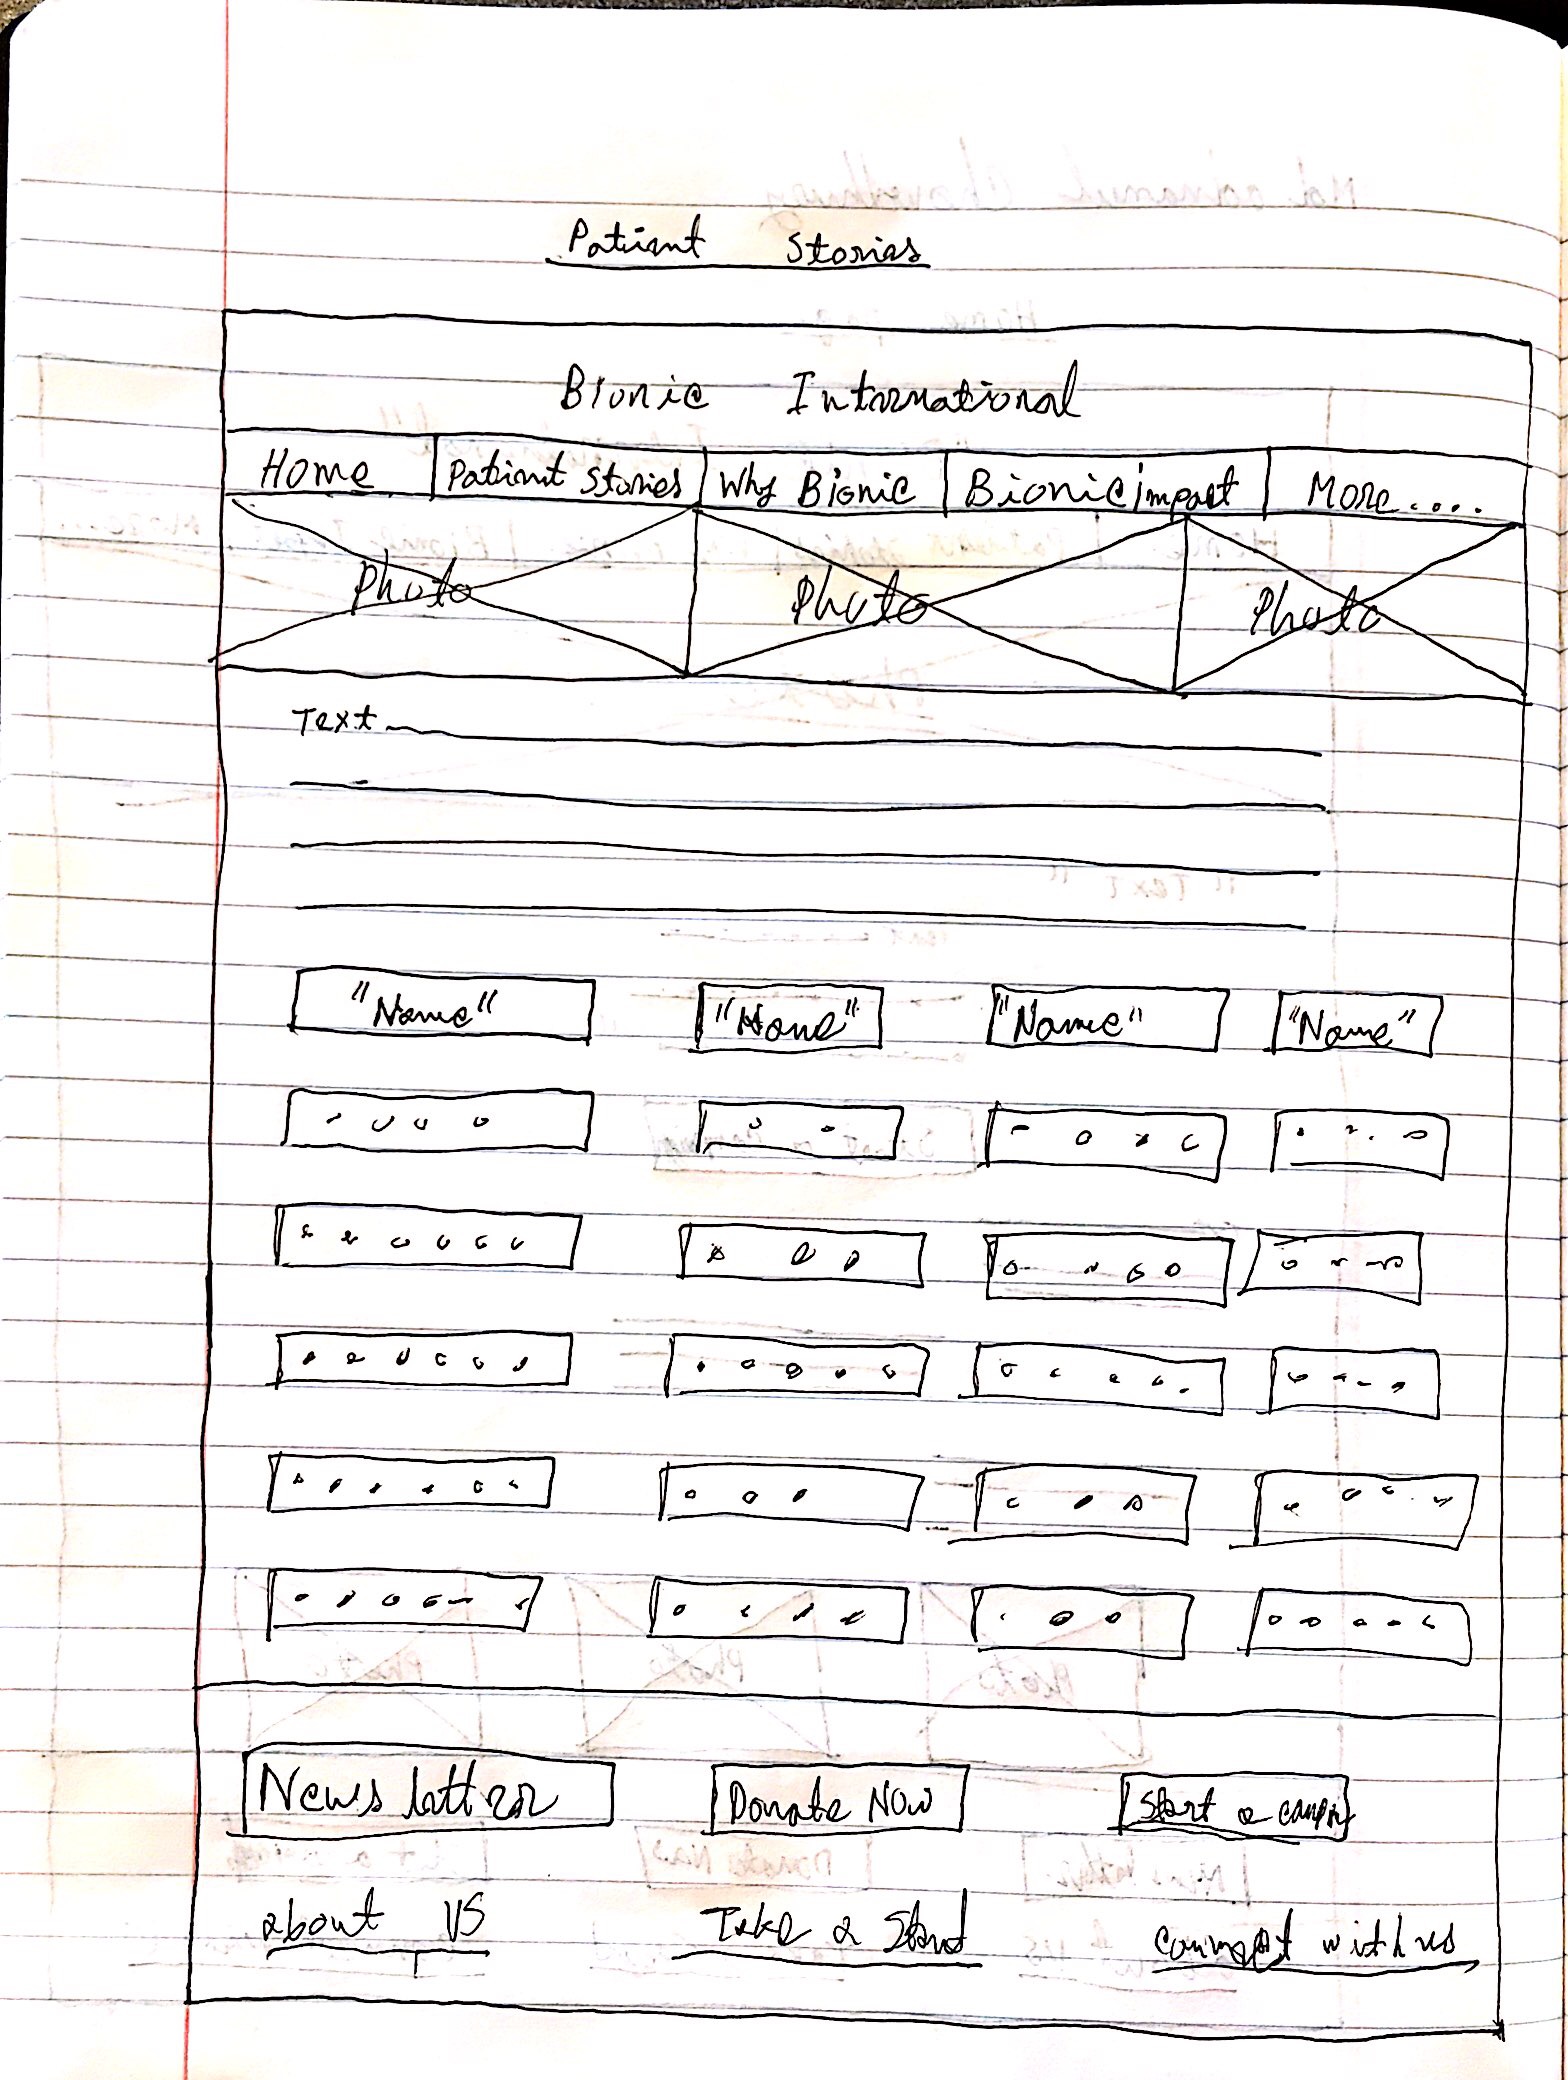 Patient Stories
Bionic International
Home Patient Stories Why Bionic Bionic impact More.....
Photo Photo Photo
Text
"Name" "Hone" "Name" "Name"
News letter Donate Now Start a
about US Take a Stand connect with us